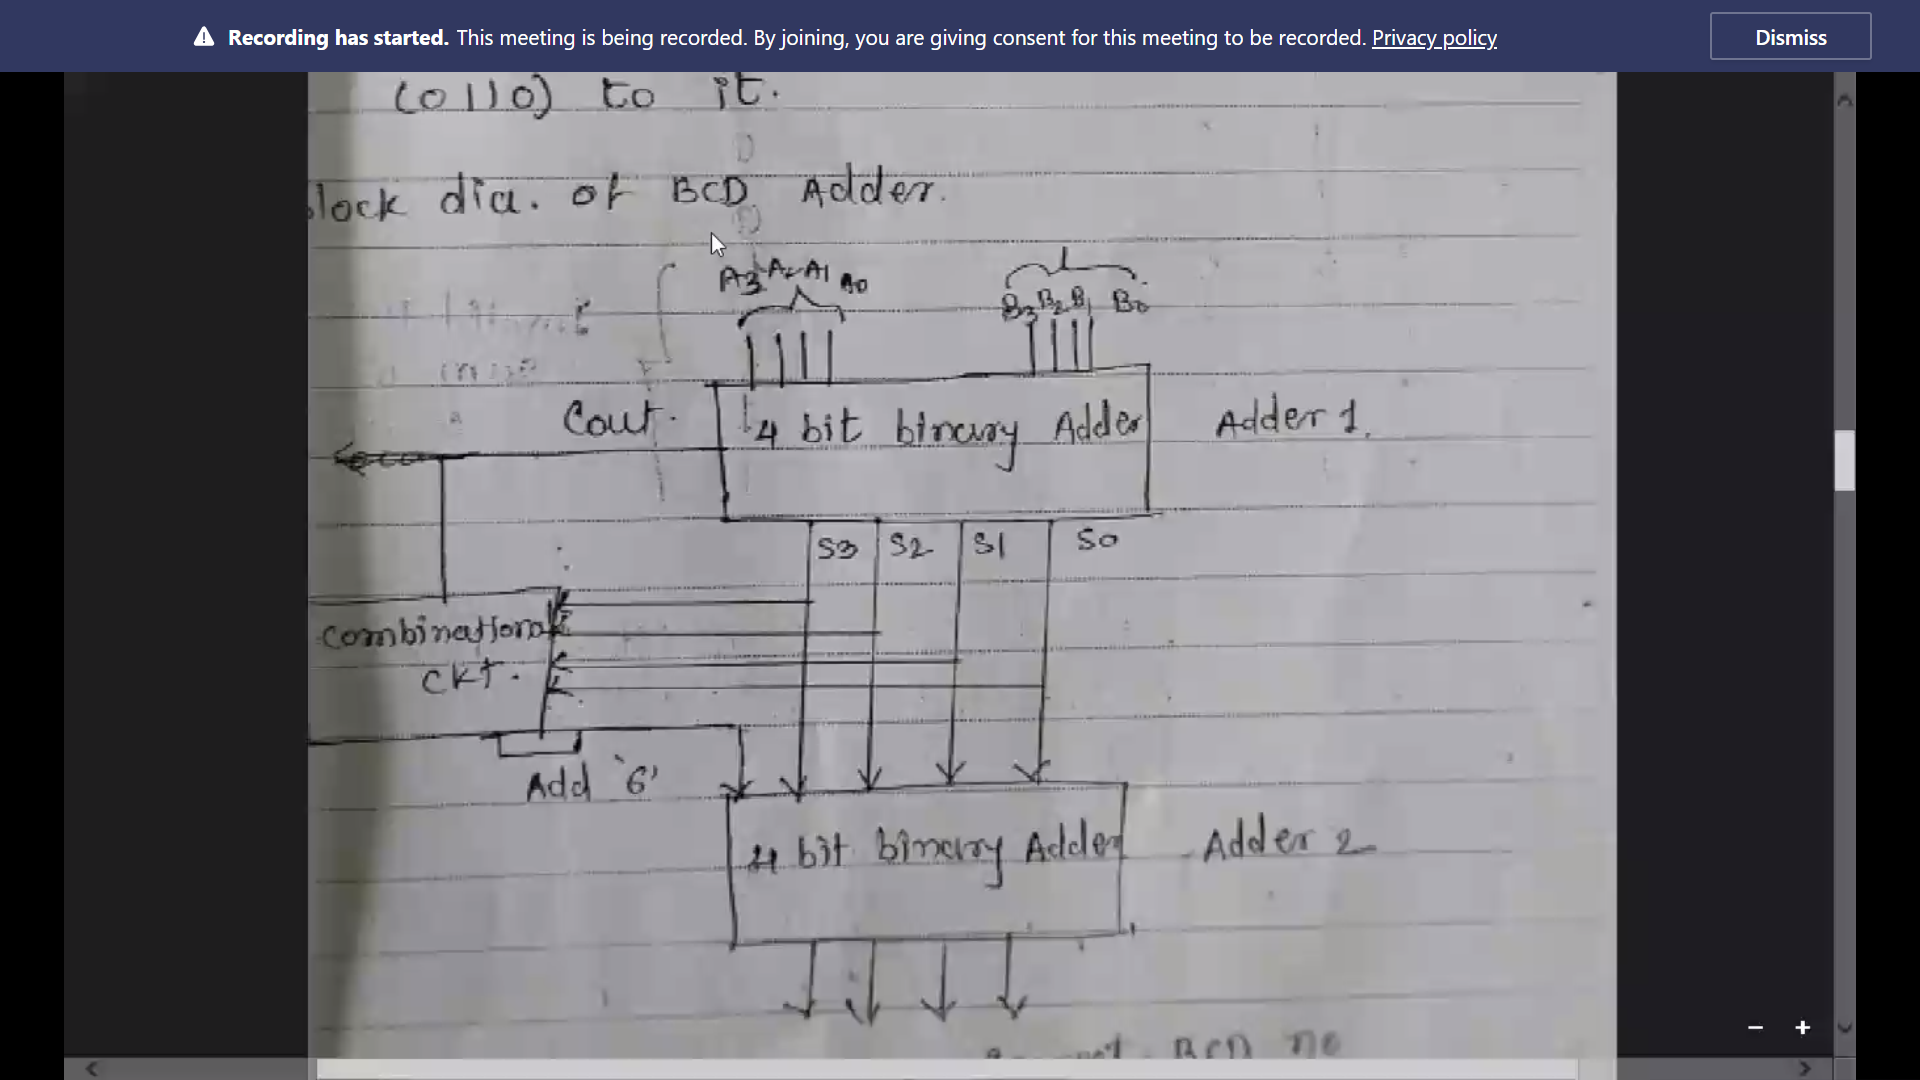 Recording has started. This meeting is being recorded. By joining, you are giving consent for this meeting to be recorded. Privacy policy
Dismiss
(0110) to it.
lock dia. of BCD Adder.
A3 A2 A1 A0
B3 B2 B1 B0
Cout.
4 bit binary Adder
Adder 1.
S3 S2 S1 S0
Combinational
CKT.
Add '6'
4 bit binary Adder
Adder 2
BCD no